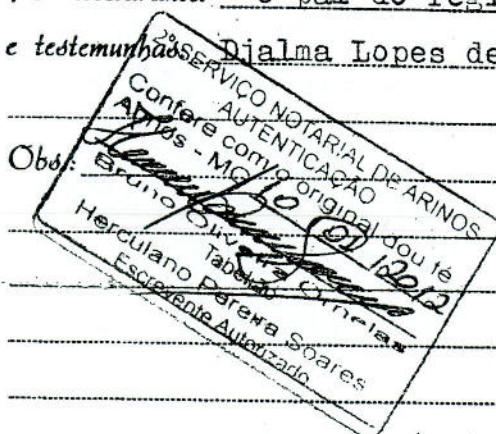 o pai do regi
e testemunhas Djalma Lopes de
Obs.:
2º SERVIÇO NOTARIAL DE ARINOS
AUTENTICAÇÃO
Confere com o original dou fé
Arinos - MG 10 01 2012
Bruno Oliveira Ornelas
Tabelião
Herculano Pereira Soares
Escrevente Autorizado